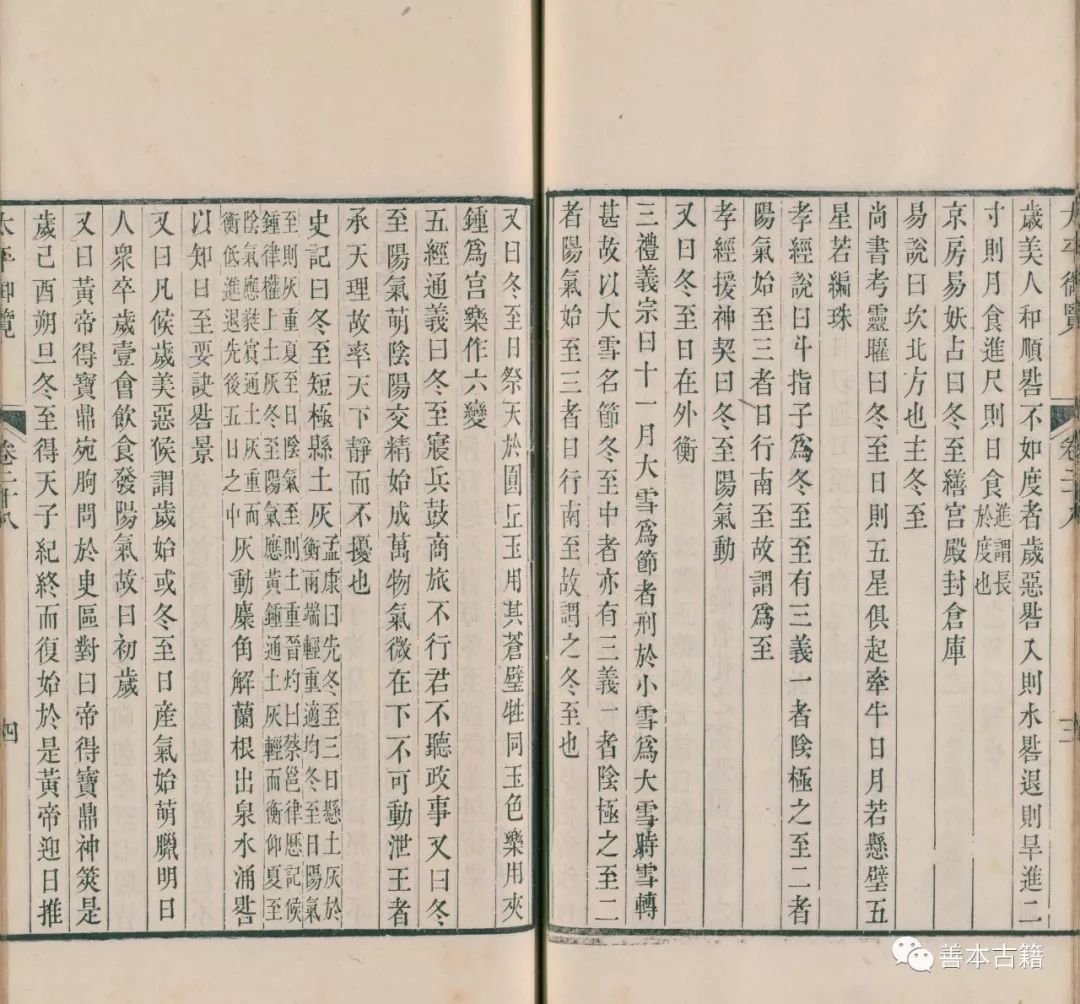 太平御覽 卷二十八 三
歲美人和順晷不如度者歲惡晷入則水晷退則旱進二
寸則月食進尺則日食進謂長於度也
京房易妖占曰冬至繕宮殿封倉庫
易說曰坎北方也主冬至
尚書考靈曜曰冬至日則五星俱起牽牛日月若懸璧五
星若編珠
孝經說曰斗指子為冬至至有三義一者陰極之至二者
陽氣始至三者日行南至故謂為至
孝經援神契曰冬至陽氣動
又曰冬至日在外衡
三禮義宗曰十一月大雪為節者刑於小雪為大雪時雪轉
甚故以大雪名節冬至中者亦有三義一者陰極之至二
者陽氣始至三者日行南至故謂之冬至也
又曰冬至日祭天於圓丘玉用其蒼璧牲同玉色樂用夾
鍾為宮樂作六變
五經通義曰冬至寢兵鼓商旅不行君不聽政事又曰冬
至陽氣萌陰陽交精始成萬物氣微在下不可動泄王者
承天理故率天下靜而不擾也
史記曰冬至短極縣土灰孟康曰先冬至三日懸土灰於衡兩端輕重適均冬至日陽氣
至則灰重夏至日陰氣至則土重晉灼曰蔡邕律歷記候
鍾律權土灰冬至陽氣應黃鍾通土灰輕而衡仰夏至
陰氣應蕤賓通土灰重而衡低進退先後五日之中灰動麋角解蘭根出泉水涌晷
以知日至要訣晷景
又曰凡候歲美惡候謂歲始或冬至日產氣始萌臘明日
人衆卒歲壹會飲食發陽氣故曰初歲
又曰黃帝得寶鼎宛朐問於史區對曰帝得寶鼎神筴是
歲己酉朔旦冬至得天子紀終而復始於是黃帝迎日推
太平御覽 卷二十八 四
善本古籍